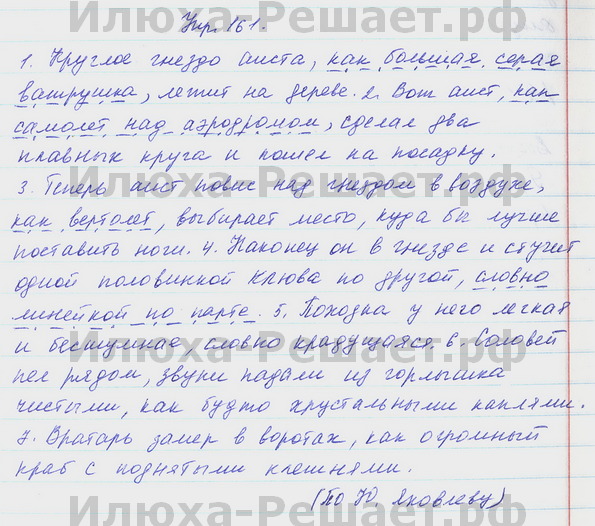 Илюха-Решает.рф
Упр. 161.
1. Круглое гнездо аиста, как большая серая
ватрушка, лежит на дереве. 2. Вот аист, как
самолет над аэродромом, сделал два
плавных круга и пошел на посадку.
Илюха-Решает.рф
3. Теперь аист повис над гнездом в воздухе,
как вертолет, выбирает место, куда бы лучше
поставить ноги. 4. Наконец он в гнезде и стучит
одной половинкой клюва по другой, словно
линейкой по парте. 5. Походка у него легкая
и бесшумная, словно крадущаяся. 6. Соловей
Илюха-Решает.рф
пел рядом, звуки падали из горлышка
чистыми, как будто хрустальными каплями.
7. Вратарь замер в воротах, как огромный
краб с поднятыми клешнями.
(По Ю. Яковлеву)
Илюха-Решает.рф